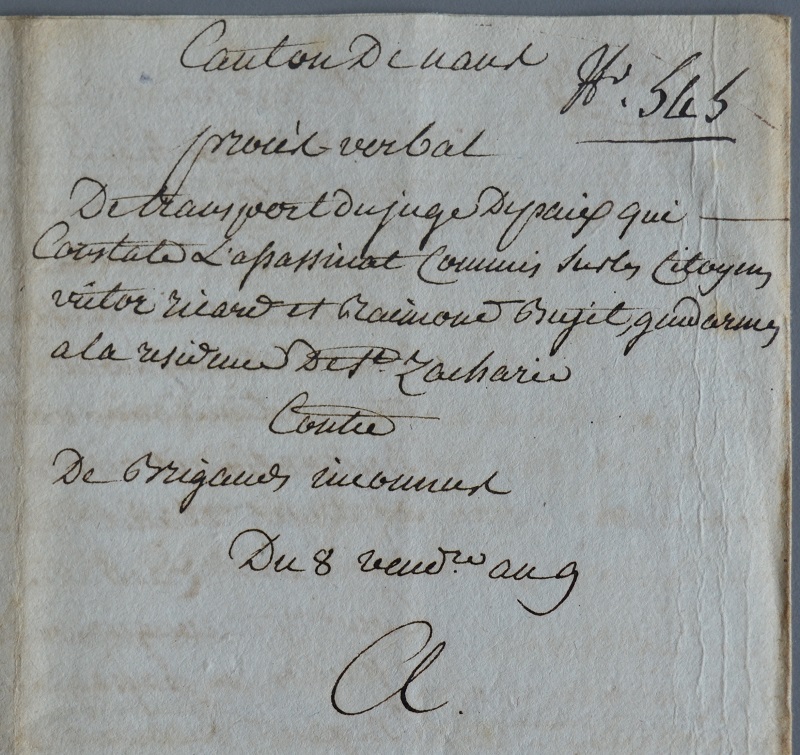 Canton De nans
N°. 545
procès verbal
De transport du juge De paix qui
Constate L'assassinat Commis sur les Citoyens
victor ricard et Raimond Bujet, gendarmes
a la residence De St. Zacharie
Contre
De Brigands inconnus
Du 8 vend.re an 9
Cl.